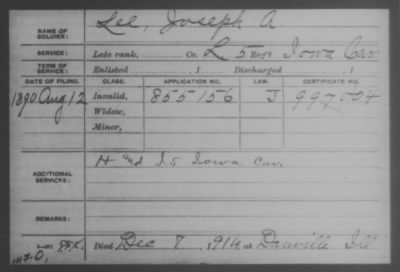 Lee, Joseph A.
NAME OF SOLDIER:
SERVICE: Late rank, Co. L 5 Reg't Iowa Cav
TERM OF SERVICE: Enlisted , 1 Discharged , 1
DATE OF FILING. CLASS. APPLICATION NO. LAW. CERTIFICATE NO.
1890 Aug 12 Invalid, 855156 J 997024
Widow,
Minor,
ADDITIONAL SERVICES: H " 15 Iowa Cav,
REMARKS:
Died Dec 7, 1914, at Danville Ill